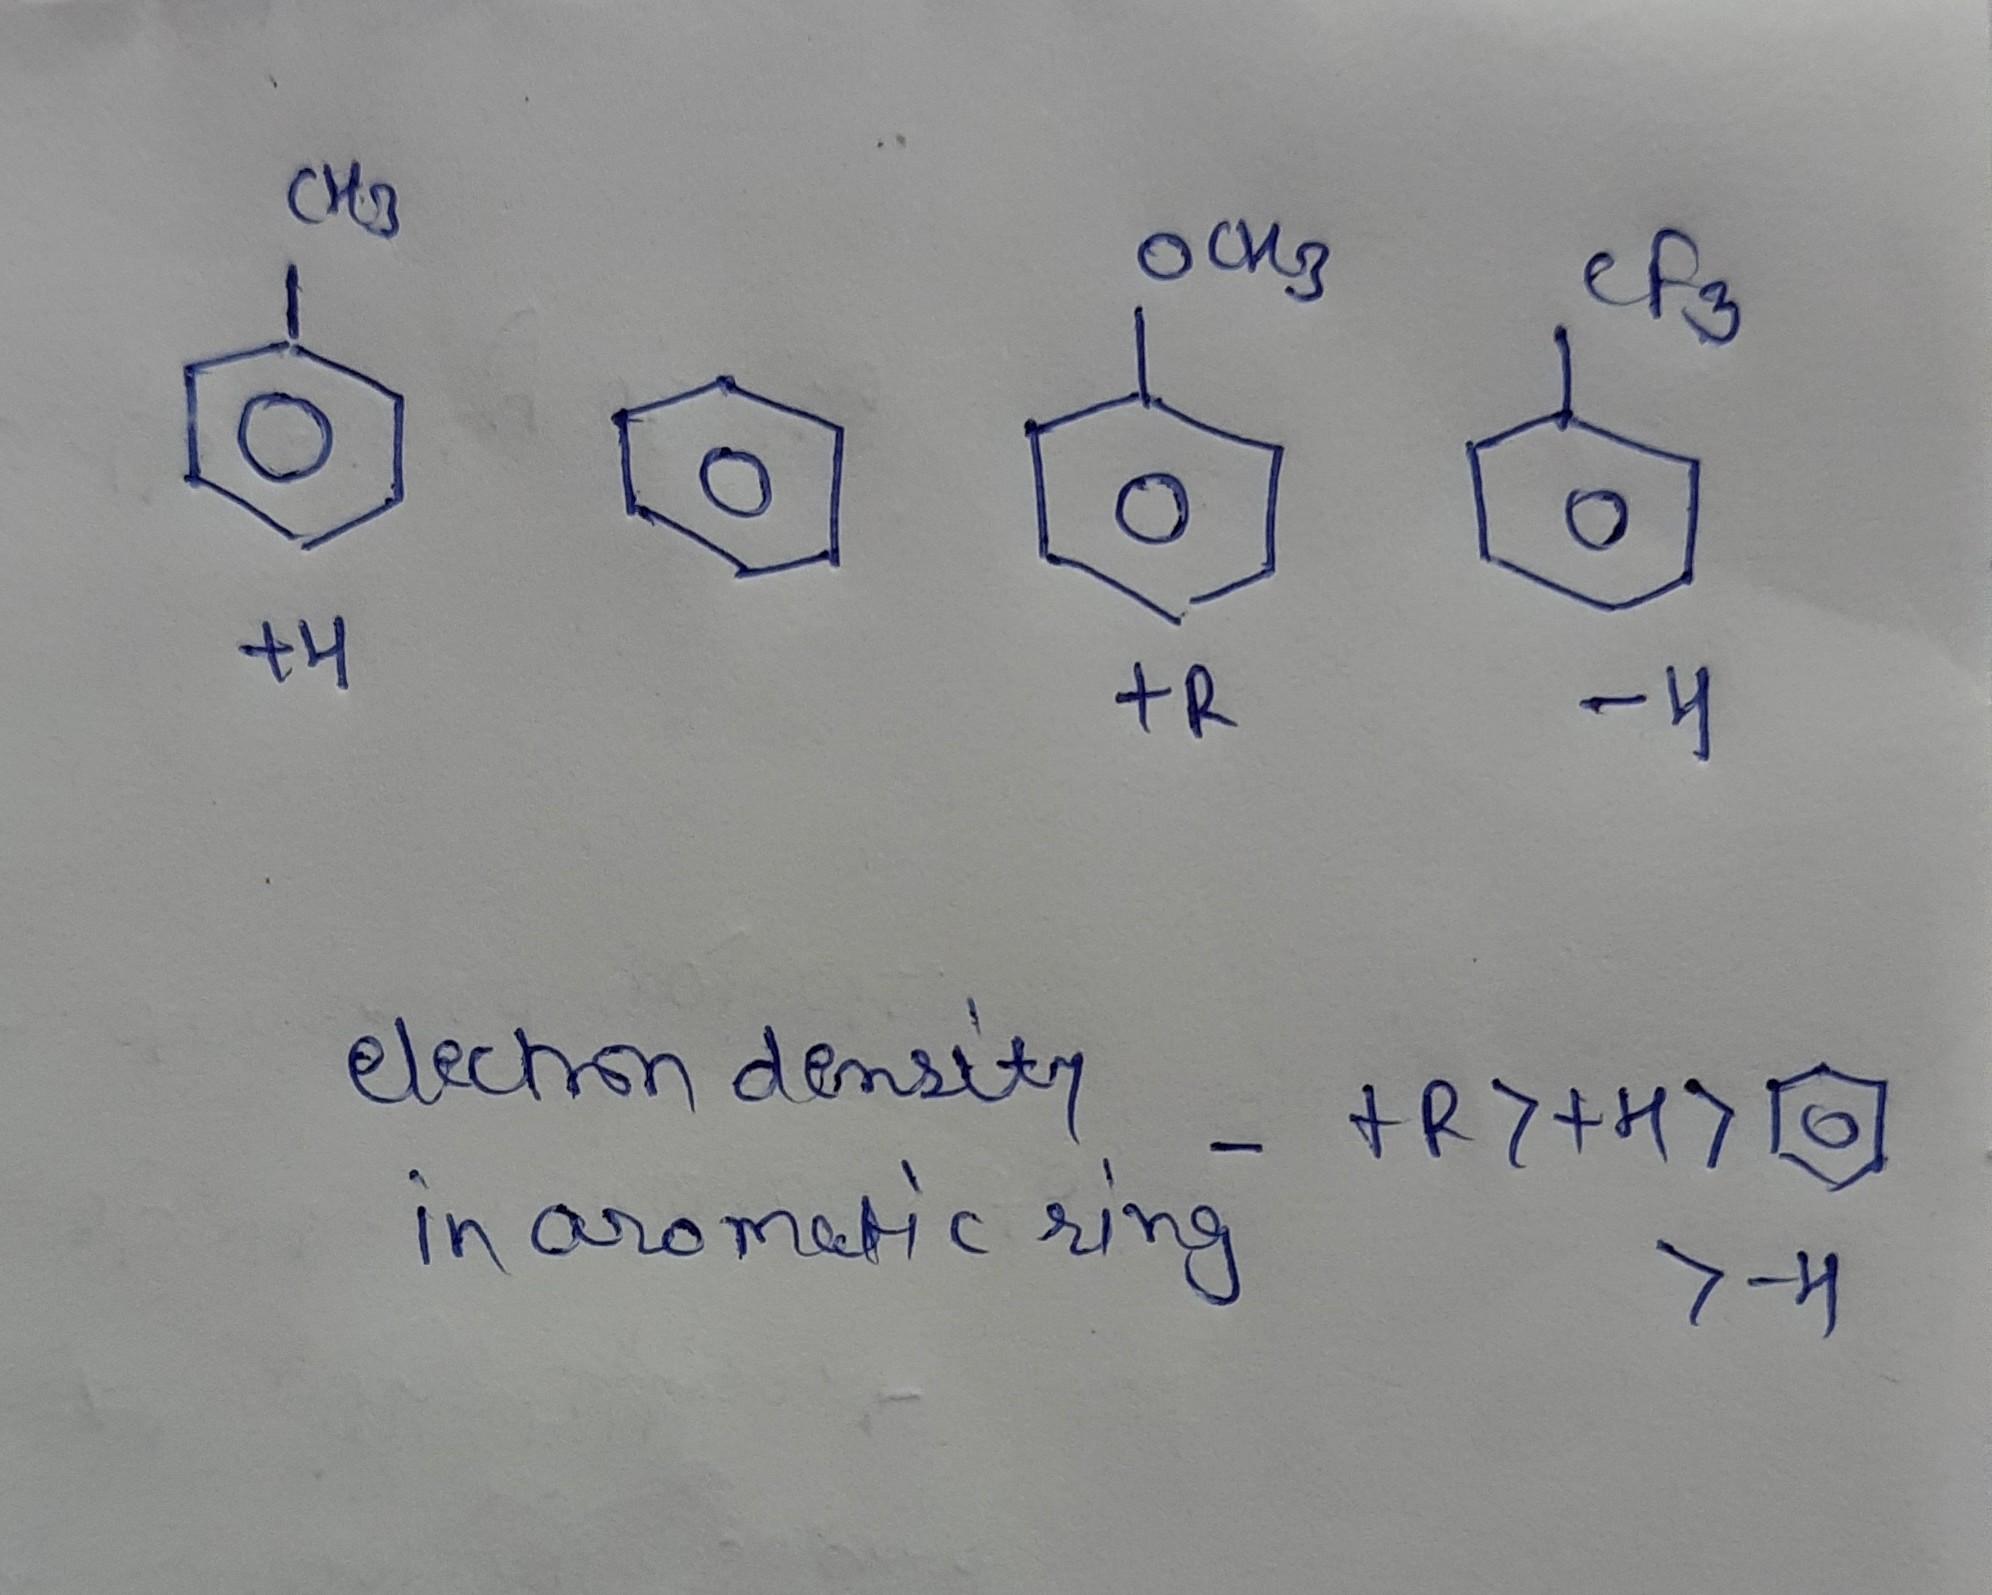 CH3
OCH3
CF3
+H
+R
-H
electron density
in aromatic ring - +R > +H >
> -H